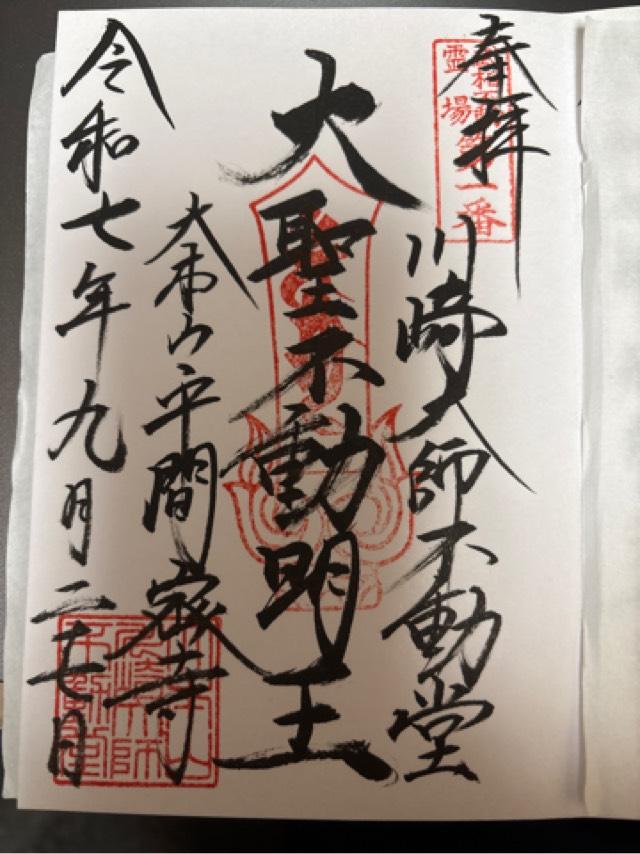 奉拝
霊場第一番
川崎大師不動堂
大聖不動明王
大本山平間寺
令和七年九月二十七日